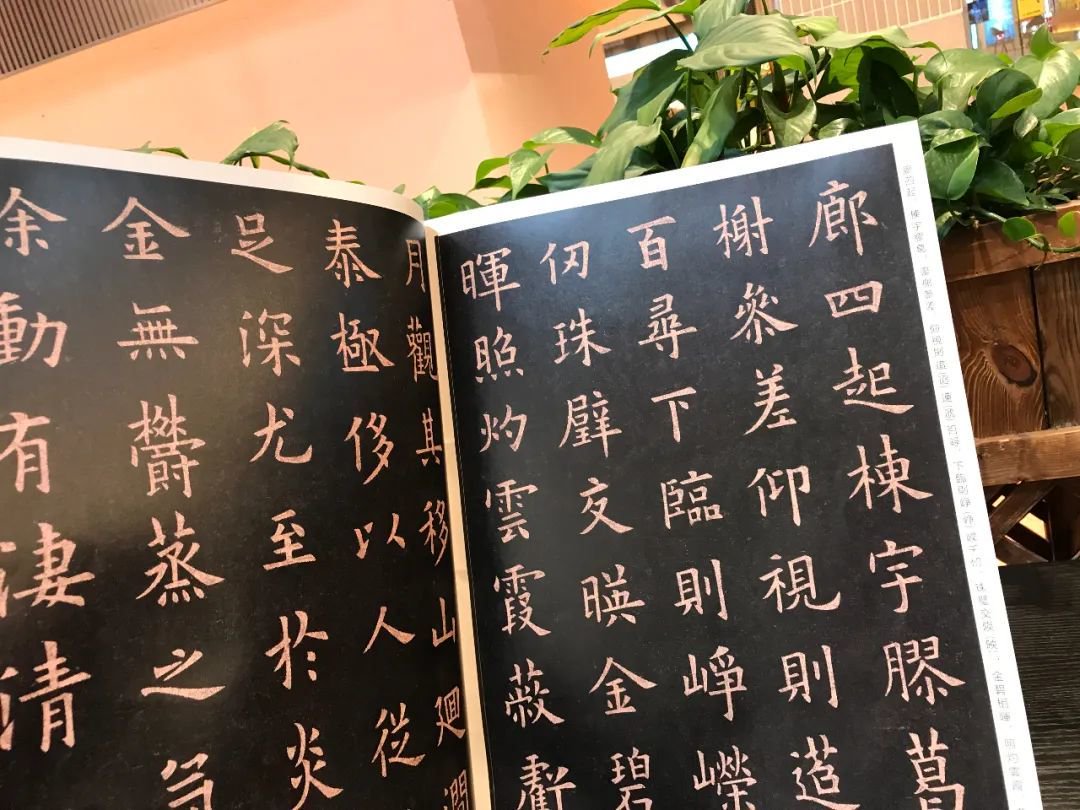 廊四起棟宇膠葛
榭參差仰視則迢
百尋下臨則崢嶸
仞珠壁交暎金碧
暉照灼雲霞蔽虧
月觀其移山迴澗
泰極侈以人從
足深尤至於炎
金無欝蒸之氣
徐動有淒清